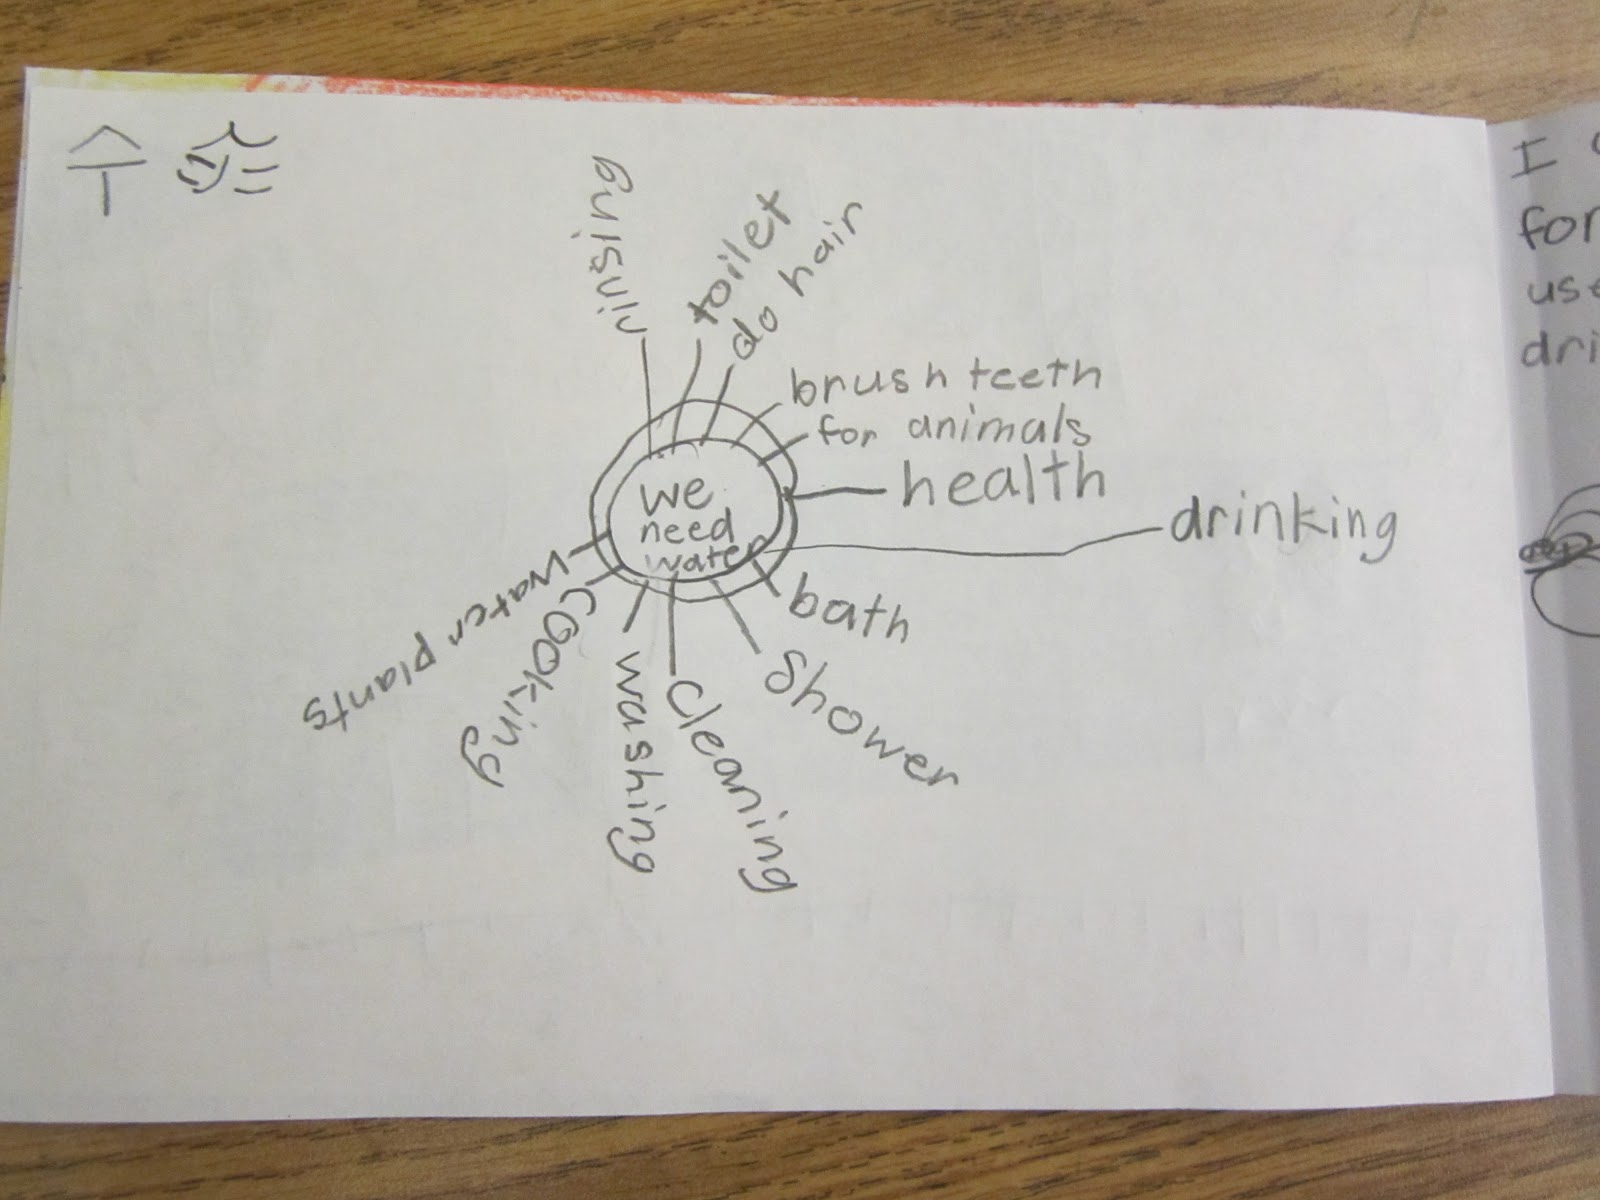 수
rinsing
toilet
do hair
brush teeth
for animals
health
drinking
bath
shower
cleaning
washing
cooking
water plants
we
need
water
I
for
use
dri